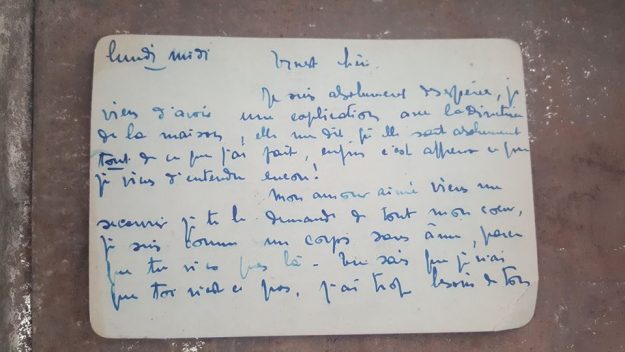 lundi midi Ernest chéri.
Je suis absolument désespérée, je
viens d'avoir une explication avec la directrice
de la maison, elle me dit qu'elle sait absolument
tout de ce que j'ai fait, enfin c'est affreux ce que
je viens d'entendre encore!
Mon amour aimé viens me
secourir je te le demande de tout mon cœur,
je suis comme un corps sans âme, parce
que tu n'es pas là - Tu sais que je n'ai
que toi n'est-ce pas, j'ai trop besoin de ton